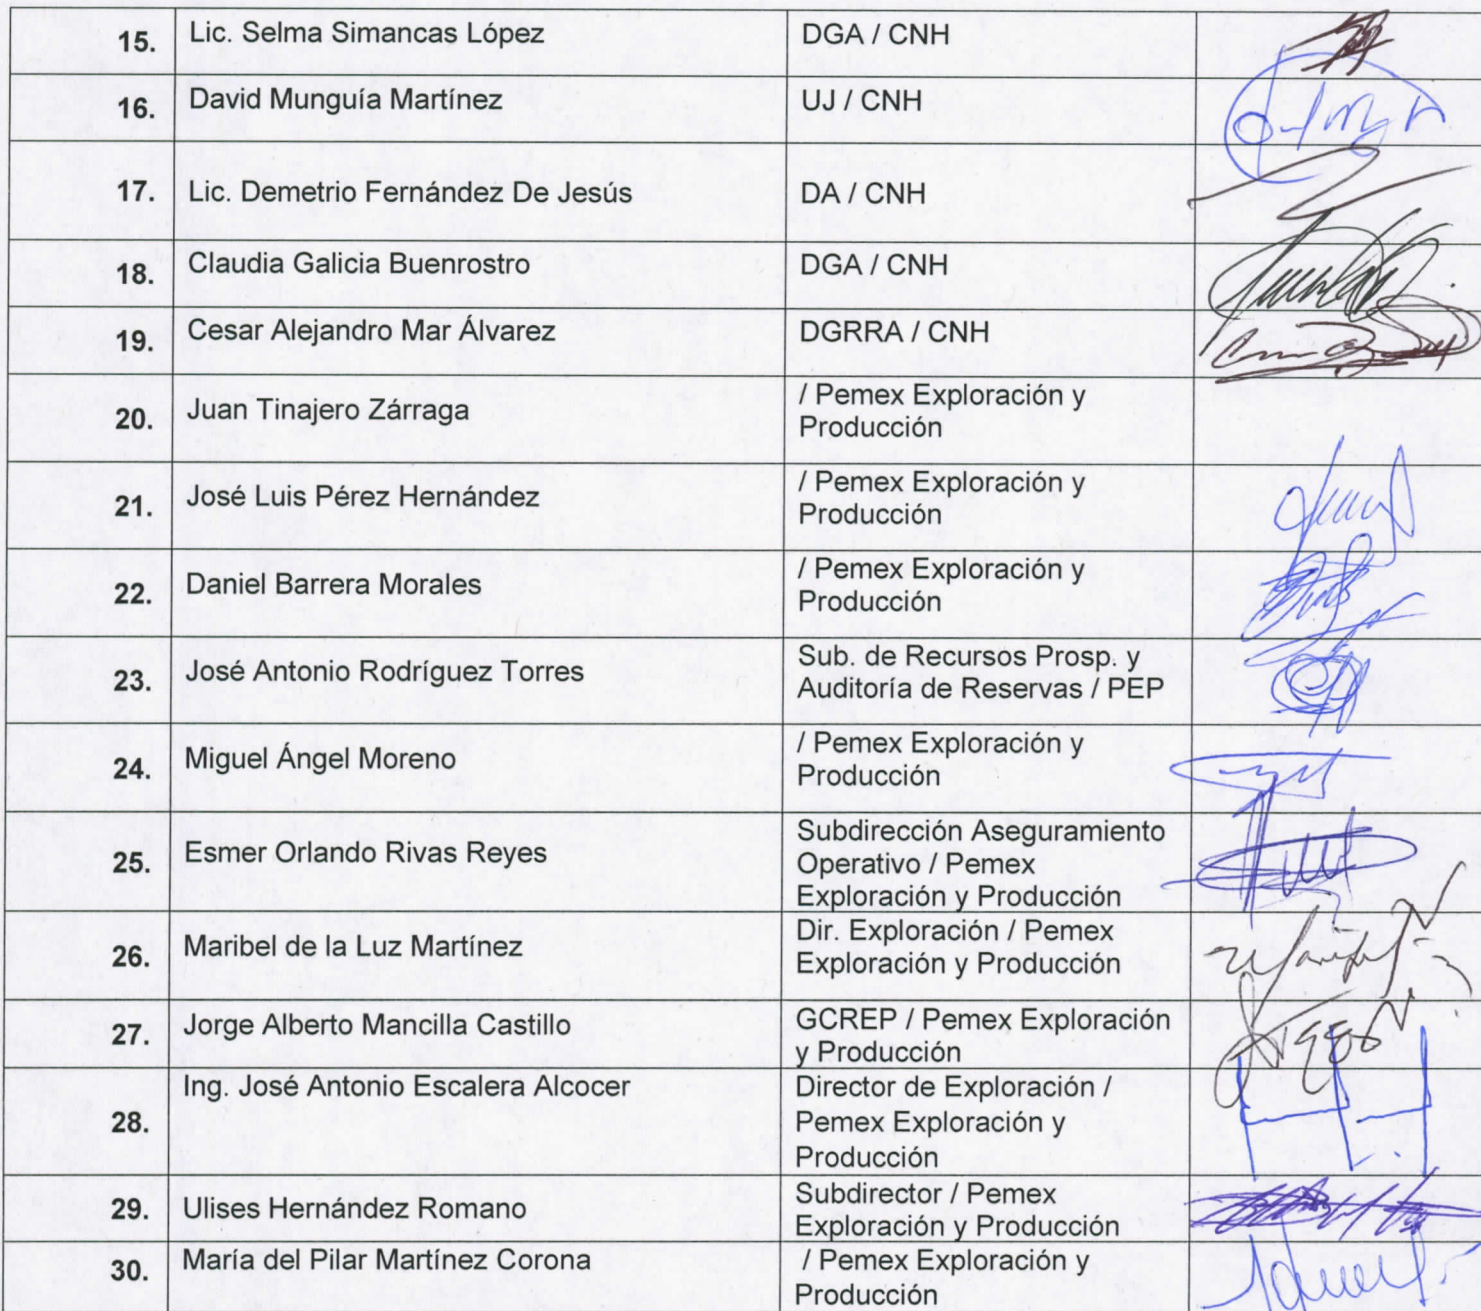 15. Lic. Selma Simancas López DGA / CNH
16. David Munguía Martínez UJ / CNH
17. Lic. Demetrio Fernández De Jesús DA / CNH
18. Claudia Galicia Buenrostro DGA / CNH
19. Cesar Alejandro Mar Álvarez DGRRA / CNH
20. Juan Tinajero Zárraga / Pemex Exploración y
Producción
21. José Luis Pérez Hernández / Pemex Exploración y
Producción
22. Daniel Barrera Morales / Pemex Exploración y
Producción
23. José Antonio Rodríguez Torres Sub. de Recursos Prosp. y
Auditoría de Reservas / PEP
24. Miguel Ángel Moreno / Pemex Exploración y
Producción
25. Esmer Orlando Rivas Reyes Subdirección Aseguramiento
Operativo / Pemex
Exploración y Producción
26. Maribel de la Luz Martínez Dir. Exploración / Pemex
Exploración y Producción
27. Jorge Alberto Mancilla Castillo GCREP / Pemex Exploración
y Producción
28. Ing. José Antonio Escalera Alcocer Director de Exploración /
Pemex Exploración y
Producción
29. Ulises Hernández Romano Subdirector / Pemex
Exploración y Producción
30. María del Pilar Martínez Corona / Pemex Exploración y
Producción